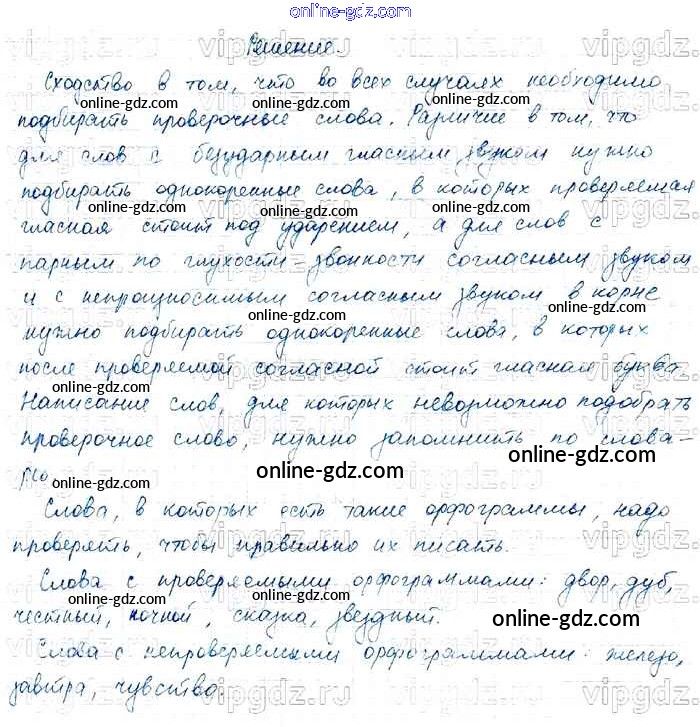 online-gdz.com
Решение.
Сходство в том, что во всех случаях необходимо
online-gdz.com online-gdz.com online-gdz.com
подбирать проверочные слова. Различие в том, что
для слов с безударным гласным звуком нужно
подбирать однокоренные слова, в которых проверяемая
online-gdz.com online-gdz.com online-gdz.com
гласная стоит под ударением, а для слов с
парным по глухости-звонкости согласным звуком
и с непроизносимым согласным звуком в корне
online-gdz.com online-gdz.com online-gdz.com
нужно подбирать однокоренные слова, в которых
после проверяемой согласной стоит гласная буква.
online-gdz.com online-gdz.com online-gdz.com
Написание слов, для которых невозможно подобрать
проверочное слово, нужно запомнить по слова-
рю
online-gdz.com online-gdz.com
Слова, в которых есть такие орфограммы, надо
проверять, чтобы правильно их писать.
Слова с проверяемыми орфограммами: двор, дуб,
online-gdz.com online-gdz.com
честный, ночной, сказка, звездный.
online-gdz.com
Слова с непроверяемыми орфограммами: железо,
online-gdz.com online-gdz.com
завтра, чувства.
vipgdz.ru